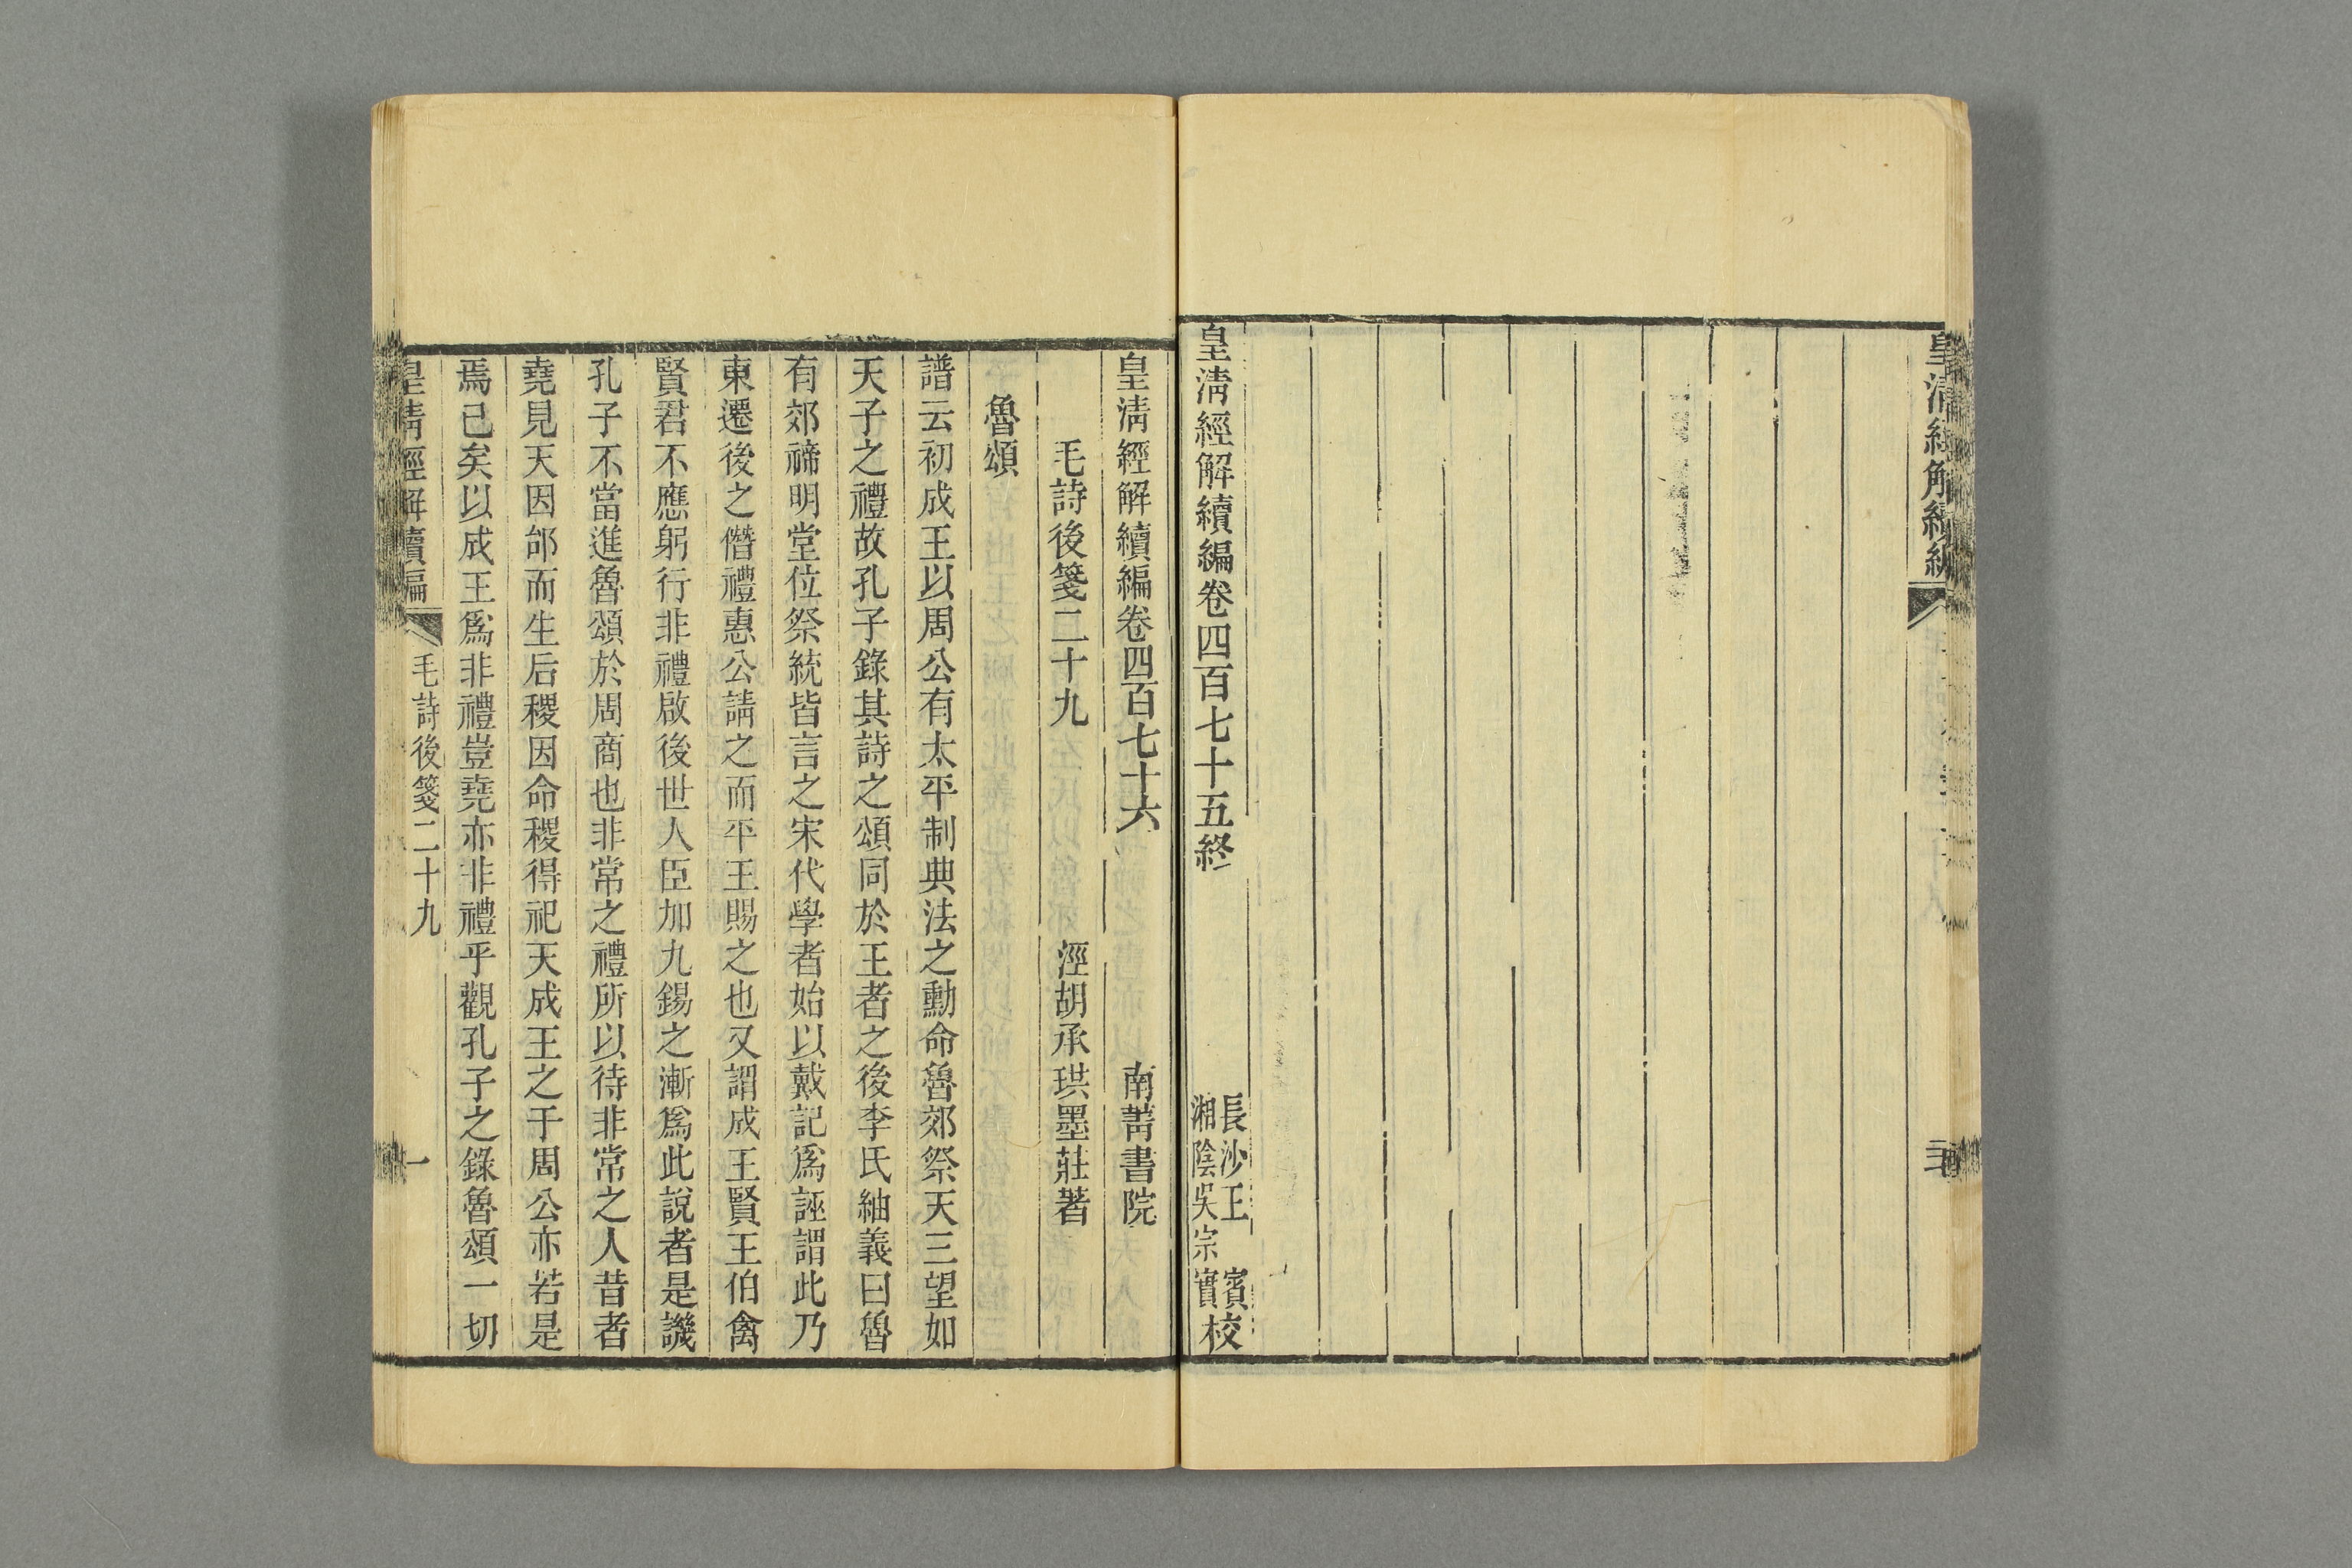 皇清經解續編
皇清經解續編卷四百七十五終
長沙王　賓
湘陰吳宗實
校
皇清經解續編卷四百七十六
南菁書院
毛詩後箋二十九
涇胡承珙墨莊著
魯頌
譜云初成王以周公有太平制典法之勳命魯郊祭天三望如
天子之禮故孔子錄其詩之頌同於王者之後李氏紬義曰魯
有郊禘明堂位祭統皆言之宋代學者始以戴記爲誣謂此乃
東遷後之僭禮惠公請之而平王賜之也又謂成王賢王伯禽
賢君不應躬行非禮啟後世人臣加九錫之漸爲此說者是譏
孔子不當進魯頌於周商也非常之禮所以待非常之人昔者
堯見天因邰而生后稷因命稷得祀天成王之于周公亦若是
焉已矣以成王爲非禮豈堯亦非禮乎觀孔子之錄魯頌一切
皇清經解續編
毛詩後箋二十九
一